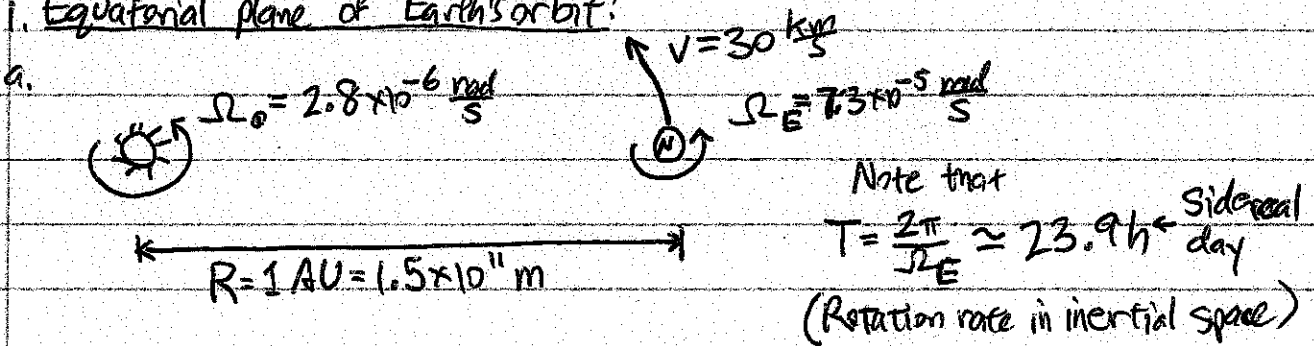 1. Equatorial plane of Earth's orbit:
a.
Ω☉ = 2.8×10⁻⁶ rad/s
V = 30 km/s
Ω_E = 7.3×10⁻⁵ rad/s
N
R = 1 AU = 1.5×10¹¹ m
Note that
T = 2π/Ω_E ≃ 23.9h ← Sidereal day
(Rotation rate in inertial space)